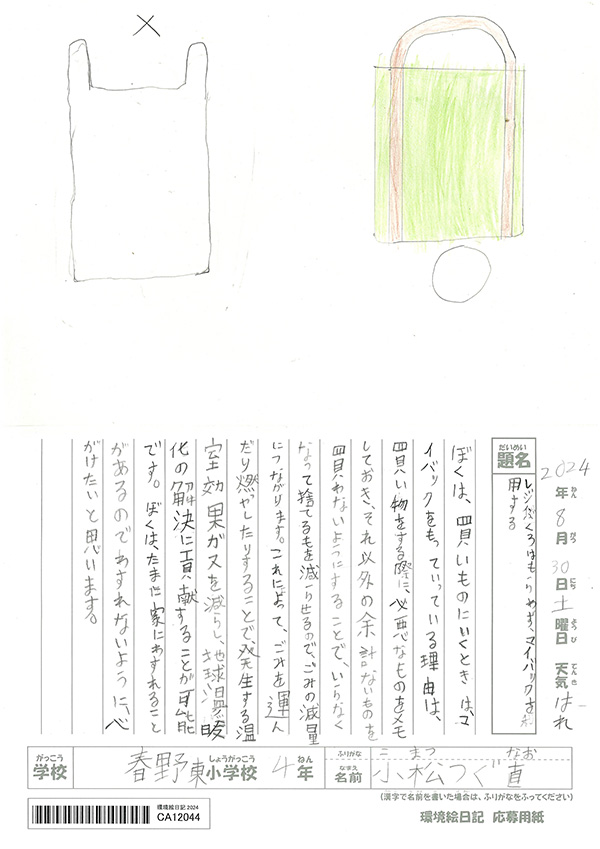 ×
だいめい
題名
レジぶくろはもらわず、マイバックを利
用する
2024年8月30日土曜日 天気はれ
ねん がつ にち ようび てんき
ぼくは、買いものにいくときは、マ
イバックをもっていっている理由は、
買い物をする際に、必要なものをメモ
しておき、それ以外の余計ないものを
買わないようにすることで、いらなく
なって捨てるもを減らせるので、ごみの減量
につながります。これによって、ごみを運ん
だり燃やしたりすることで、発生する温
室効果ガスを減らし、地球温暖
化の解決に貢献することが可能
です。ぼくは、たまに家にわすれること
があるのでわすれないように、心
がけたいと思います。
がっこう しょうがっこう ねん ふりがな こまつ なお
学校 春野東小学校 4年 なまえ 名前 小松つぐ直
(漢字で名前を書いた場合は、ふりがなをふってください)
環境絵日記2024
CA12044
環境絵日記 応募用紙